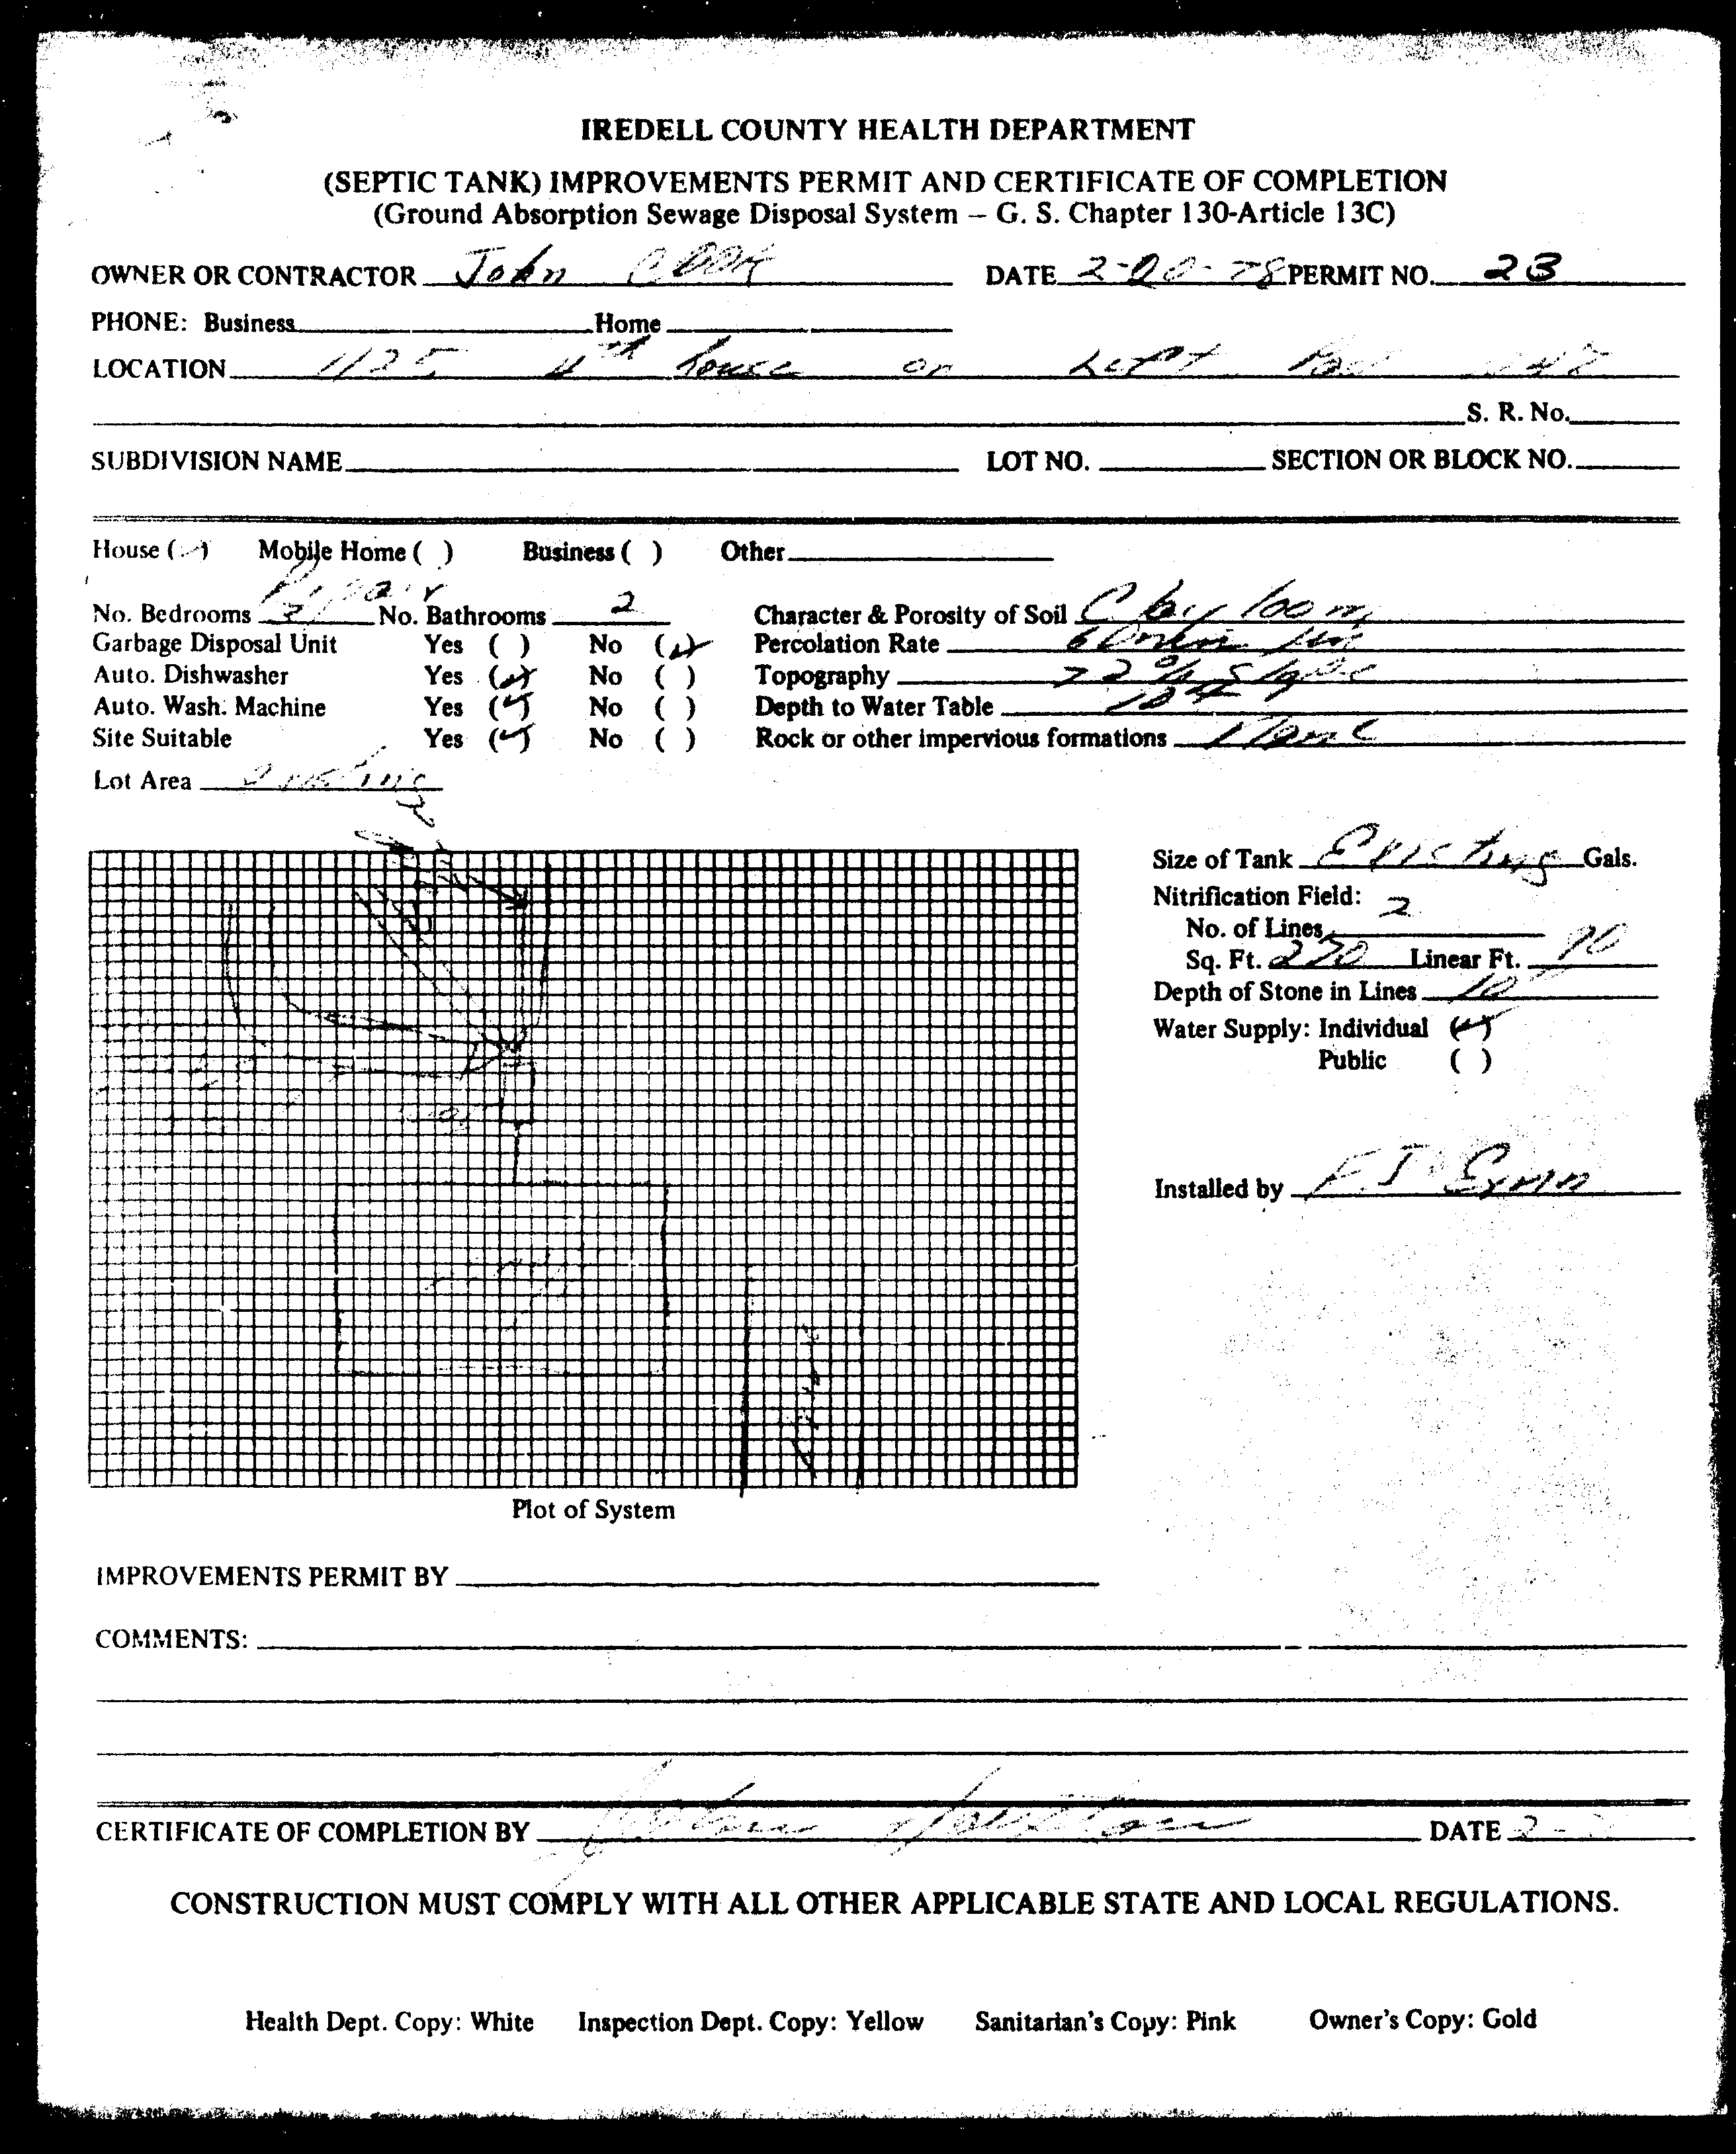 IREDELL COUNTY HEALTH DEPARTMENT
(SEPTIC TANK) IMPROVEMENTS PERMIT AND CERTIFICATE OF COMPLETION
(Ground Absorption Sewage Disposal System – G. S. Chapter 130-Article 13C)
OWNER OR CONTRACTOR John Cook DATE 2-20-78 PERMIT NO. 23
PHONE: Business Home
LOCATION 1125 4th house on Left
S. R. No.
SUBDIVISION NAME LOT NO. SECTION OR BLOCK NO.
House (✓) Mobile Home ( ) Business ( ) Other
Repair
No. Bedrooms No. Bathrooms 2 Character & Porosity of Soil Clay loom
Garbage Disposal Unit Yes ( ) No (✓) Percolation Rate 60 min /in
Auto. Dishwasher Yes (✓) No ( ) Topography 22% Slope
Auto. Wash. Machine Yes (✓) No ( ) Depth to Water Table
Site Suitable Yes (✓) No ( ) Rock or other impervious formations None
Lot Area
Size of Tank Existing Gals.
Nitrification Field:
No. of Lines 2
Sq. Ft. 270 Linear Ft. 90
Depth of Stone in Lines 10"
Water Supply: Individual (✓)
Public ( )
Installed by F.J.
Plot of System
IMPROVEMENTS PERMIT BY
COMMENTS:
CERTIFICATE OF COMPLETION BY DATE 2-
CONSTRUCTION MUST COMPLY WITH ALL OTHER APPLICABLE STATE AND LOCAL REGULATIONS.
Health Dept. Copy: White Inspection Dept. Copy: Yellow Sanitarian's Copy: Pink Owner's Copy: Gold